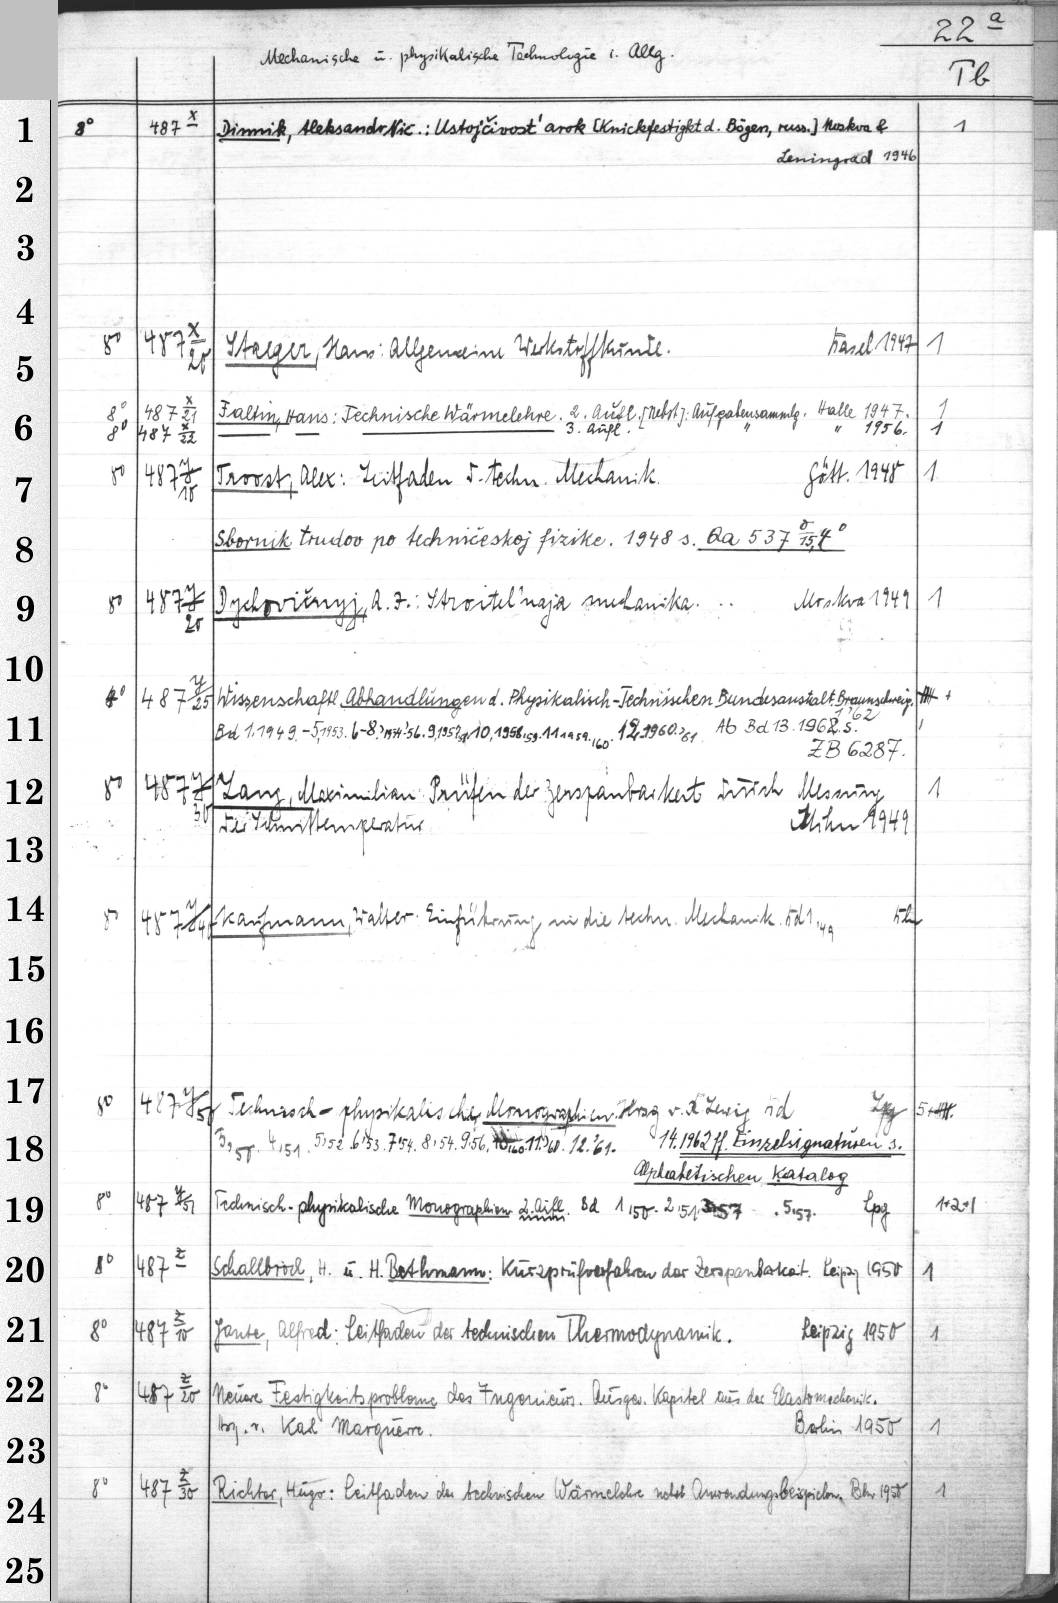 22 a
Mechanische u. physikalische Technologie i. Allg.
Tb
1 8° 487 x Dinnik, Aleksandr Nic.: Ustojčivost' arok [Knickfestigkt d. Bögen, russ.] Moskva & 1
Leningrad 1946
2
3
4
8° 487 x/20 Staeger, Hans: Allgemeine Werkstoffkunde. Basel 1947 1
5
8° 487 x/21 Faltin, Hans: Technische Wärmelehre. 2. Aufl. [Nebst]: Aufgabensammlg. Halle 1947. 1
6 8° 487 x/22 3. Aufl. " " 1956. 1
7 8° 487 y/10 Troost, Alex: Leitfaden d. techn. Mechanik. Gött. 1948 1
8 Sbornik trudov po techničeskoj fizike. 1948 s. Qa 537 /15, 4°
9 8° 487 y/20 Dychovičnyj, A. I.: Stroitel'naja mechanika. . . Moskva 1949 1
10
4° 487 y/25 Wissenschaftl. Abhandlungen d. Physikalisch-Technischen Bundesanstalt Braunschweig. +
11 Bd 1.1949.-5,1953. 6-8,1954-'56. 9,1957,58, 10,1958,59. 11 1959,'60. 12,1960,'61. Ab Bd 13.1962 s.
ZB 6287.
12 8° 487 y/30 Lang, Maximilian: Prüfen der Zerspanbarkeit durch Messung 1
der Schnittemperatur Mchn 1949
13
14 8° 487 y/40 Kaufmann, Walter: Einführung in die techn. Mechanik. Bd 1,49 Bln
15
16
17
8° 487 y/50 Technisch-physikalische Monographien. Hrsg v. Bd Lpg 5+
18 3,50. 4,51. 5,52. 6'53. 7'54. 8,54. 9'56. 10,60. 11,'60. 12,'61. 14.1962 ff. Einzelsignaturen s.
Alphabetischen Katalog
19 8° 487 y/51 Technisch-physikalische Monographien 2. Aufl. Bd 1,50. 2,51 3,57 . 5,57. Lpg 1+2+1
20 8° 487 z Schallbroch, H. u. H. Bethmann: Kurzprüfverfahren der Zerspanbarkeit. Leipzig 1950 1
21 8° 487 z/10 Jante, Alfred: Leitfaden der technischen Thermodynamik. Leipzig 1950 1
22 8° 487 z/20 Neuere Festigkeitsprobleme des Ingenieurs. Ausgew. Kapitel aus der Elastomechanik.
Hrg. v. Karl Marguerre. Berlin 1950 1
23
24 8° 487 z/30 Richter, Hugo: Leitfaden der technischen Wärmelehre nebst Anwendungsbeispielen. Bln 1950 1
25